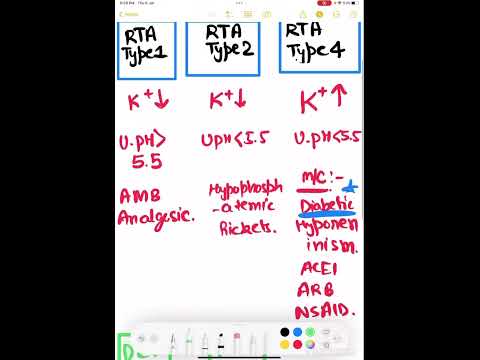 RTA
Type1
RTA
Type2
RTA
Type4
K+↓
K+↓
K+↑
U.pH>
5.5
UpH<5.5
U.pH<5.5
AMB
Analgesic.
Hypophosph
-atemic
Rickets.
M/C:-
Diabetic
Hyporen
inism.
ACEI
ARB
NSAID.